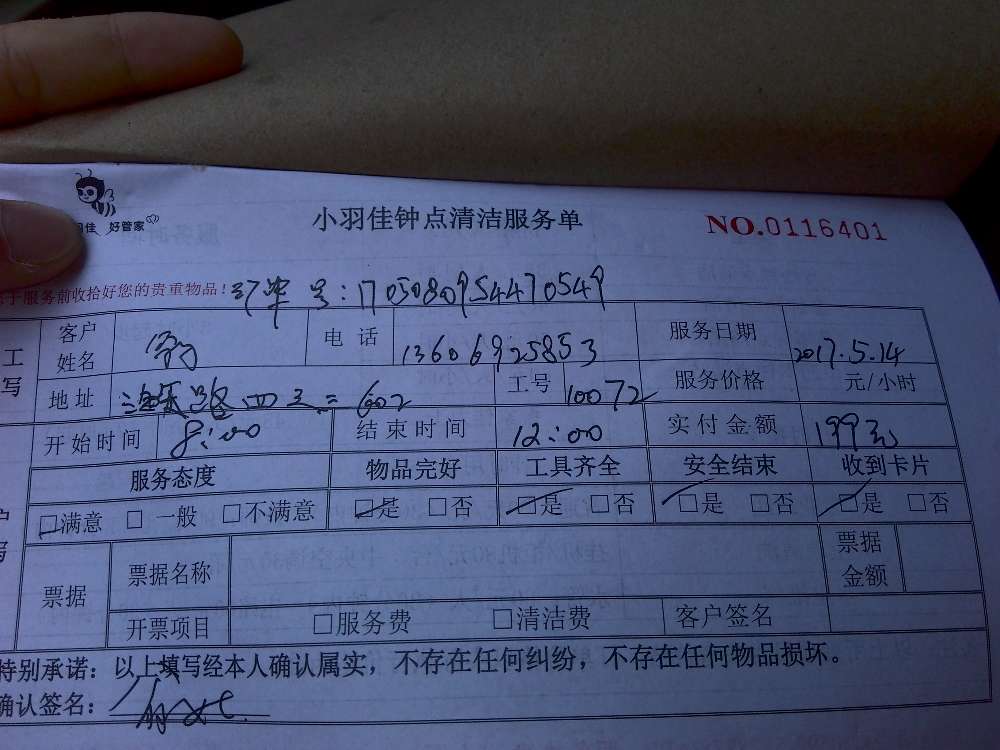 羽佳 好管家
小羽佳钟点清洁服务单
NO.0116401
于服务前收拾好您的贵重物品!
号:1705080954470549
工
写
客户姓名
电话 13606925853
服务日期 2017.5.14
地址 路四 602
工号 10072
服务价格 元/小时
开始时间 8:00
结束时间 12:00
实付金额 199元
服务态度 物品完好 工具齐全 安全结束 收到卡片
□满意 □一般 □不满意 □是 □否 □是 □否 □是 □否 □是 □否
户
写
票据
票据名称
票据金额
开票项目 □服务费 □清洁费 客户签名
特别承诺:以上填写经本人确认属实,不存在任何纠纷,不存在任何物品损坏。
确认签名: